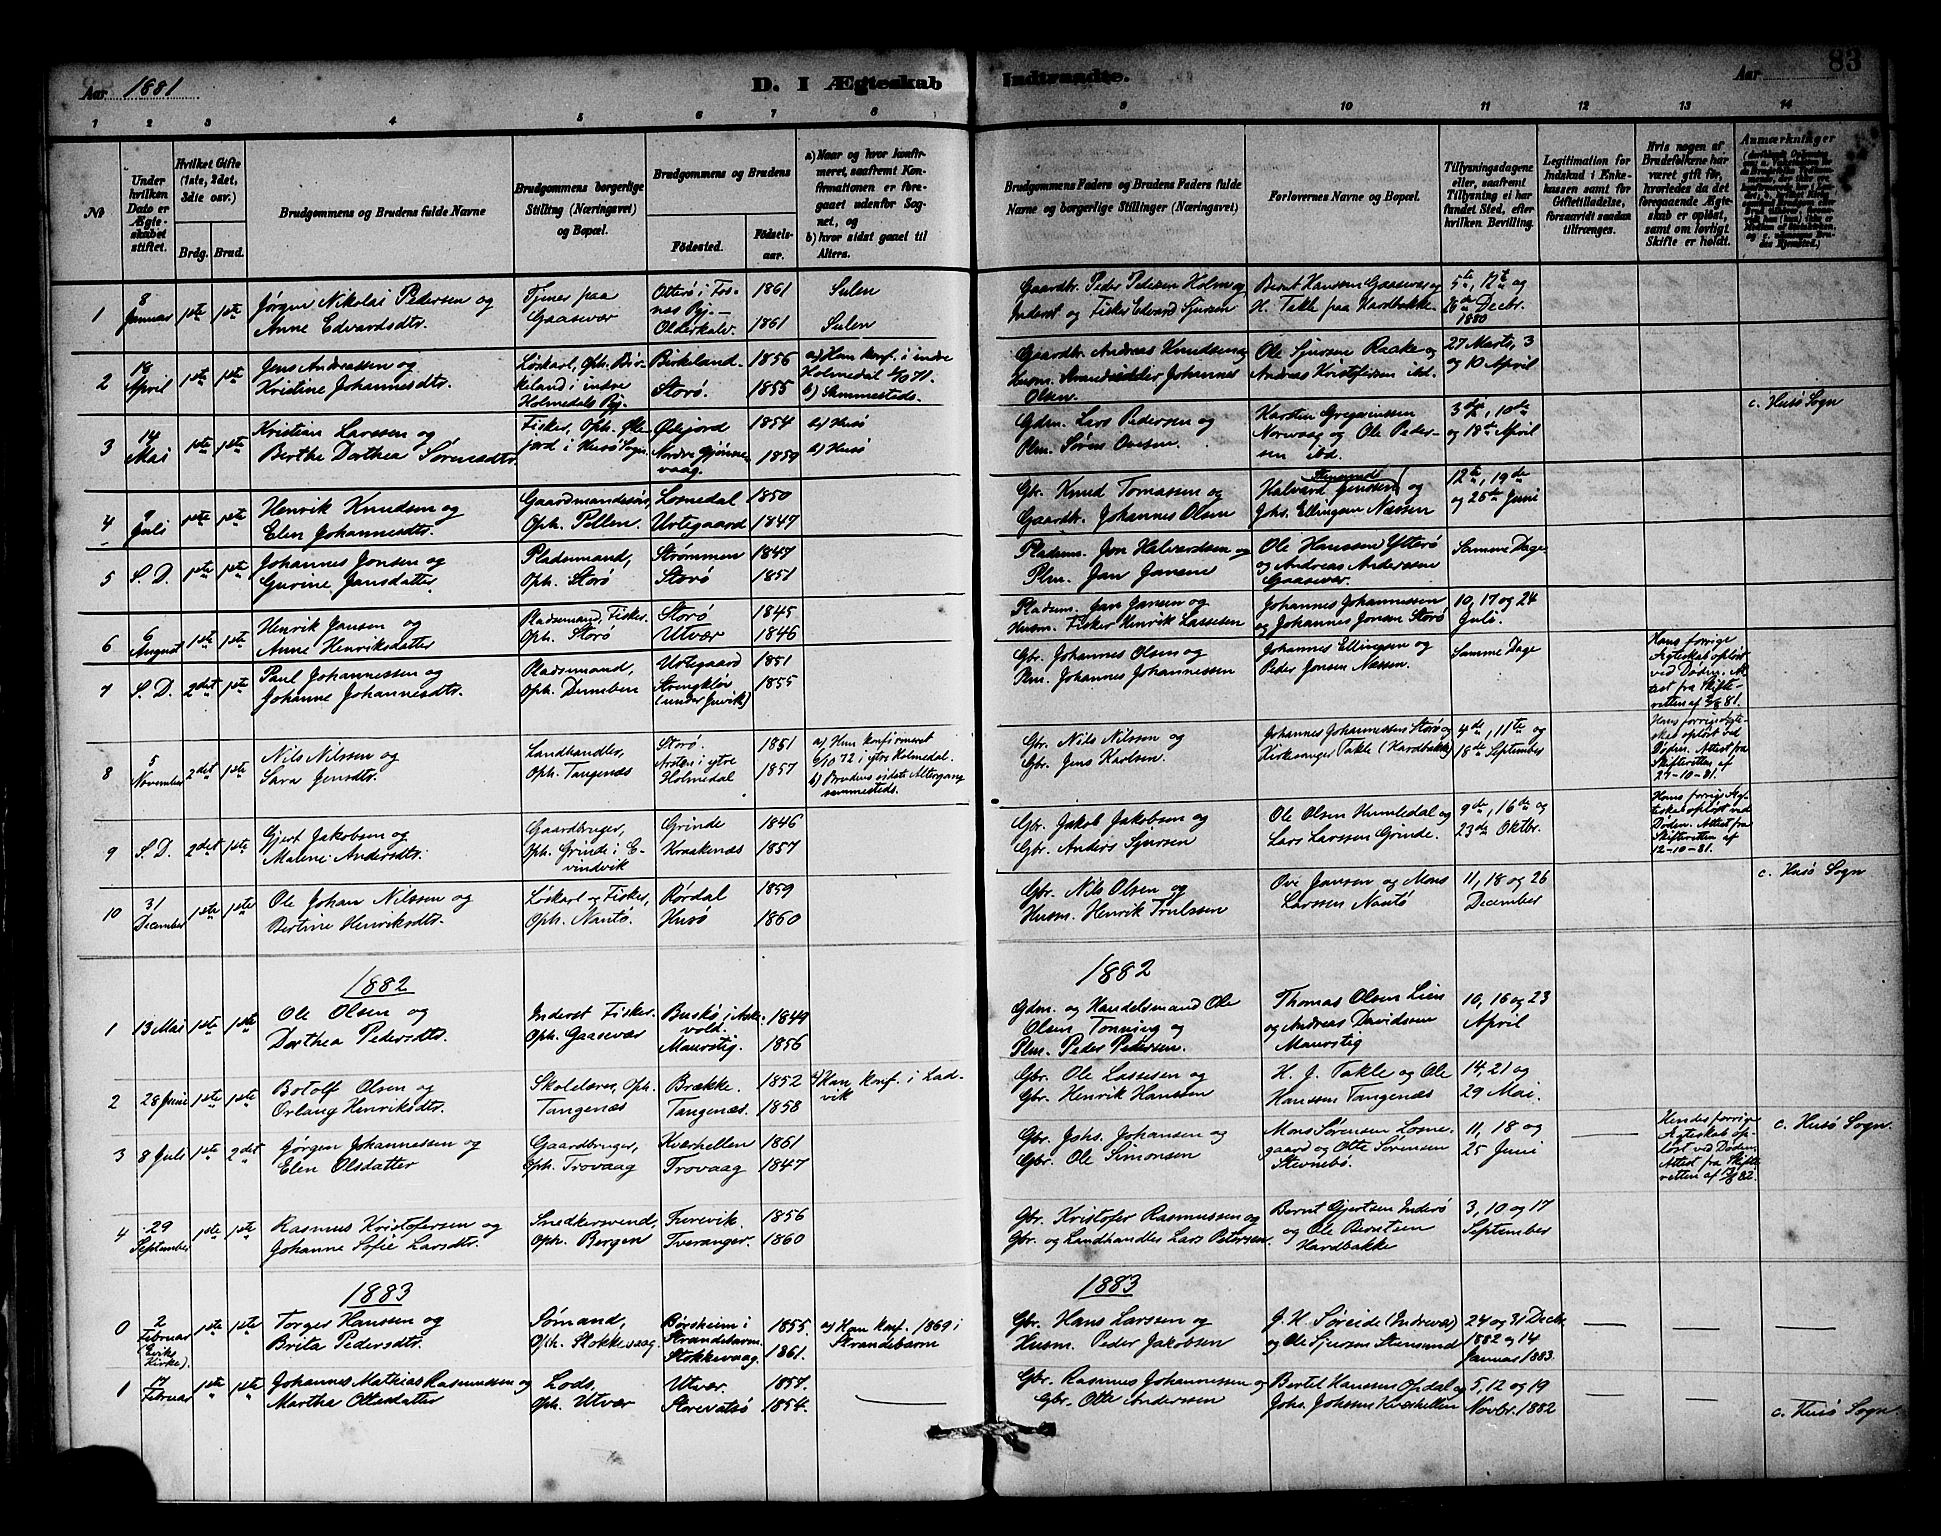 Aar 1881
D. I Ægteskab
Indtraadte.
Aar
83
1 2 3 4 5 6 7 8 9 10 11 12 13 14
No
Under hvilken Dato er Ægteskabet stiftet.
Hvilket Gifte (1ste, 2det, 3die osv.)
Brdg. Brud.
Brudgommens og Brudens fulde Navne
Brudgommens borgerlige Stilling (Næringsvei) og Bopæl.
Brudgommens og Brudens
Fødested.
Fødselsaar.
a) Naar og hvor konfirmeret, saafremt Konfirmationen er foregaaet udenfor Sognet, og
b) hvor sidst gaaet til Alters.
Brudgommens Faders og Brudens Faders fulde Navne og borgerlige Stillinger (Næringsvei)
Forlovernes Navne og Bopæl.
Tillysningsdagene eller, saafremt Tillysning ei har fundet Sted, efter hvilken Bevilling.
Legitimation for Indskud i Enkekassen samt for Giftetilladelse, forsaavidt saadan tiltrænges.
Hvis nogen af Brudefolkene har været gift før, hvorledes da det foregaaende Ægteskab er opløst, samt om lovligt Skifte er holdt.
Anmærkninger
1 8 Januar 1ste 1ste Jørgen Nikolai Pedersen og Anne Edvardsdtr. Tjener paa Gaasevær Otterø i Fosnæs Pgj. – Olderkalv. 1861 1861 Sulen Sulen
Gaardbr. Peder Pedersen Holm og Inderst og Fisker Edvard Sjursen Bernt Hansen Gaasevær og H. Takle paa Hardbakke 5te, 12te og 26de Decbr. 1880
2 18 April 1ste 1ste Jens Andreassen og Kristine Johannesdtr. Løskarl, Oph. Birkeland i indre Holmedals Pgj. Birkeland Storø. 1856 1855 a) Han konf. i indre Holmedal 1/10 71. b) Sammesteds.
Gaardbr. Andreas Knudsen og Husm. Strandsidder Johannes Olsen Ole Sjursen Raake og Andreas Kristofersen ibd. 27 Marts, 3 og 10 April
3 14 Mai 1ste 1ste Kristian Larssen og Berthe Dorthea Sørensdtr. Fisker, Oph. Økjord i Husø Sogn. Nordre Gjønnevaag. 1854 1859 a) Husø b) Husø
Gdm. Lars Pedersen og Plm. Søren Ovesen. Karsten Gregoriussen Norvaag og Ole Pedersen ibd. 3die, 10de og 18de April c. Husø Sogn
4 9 Juli 1ste 1ste Henrik Knudsen og Elen Johannesdtr. Gaardmandssøn, Oph. Pollen. Losnedal Urtegaard 1850 1847
Gbr. Knud Tomassen og Gaardbr. Johannes Olsen Halvard Jenssen og Johs. Ellingsen Næssen 12te, 19de og 26de Juni
5 S. D. 1ste 1ste Johannes Jonsen og Gurine Jansdatter Pladsmand, Oph. Storø Strømmen Storø 1847 1851
Pladsm. Jon Halvardsen og Plm. Jan Jansene Ole Hanssen Ytterø og Andreas Anderssen Gaasevær. Samme Dage
6 6 August 1ste 1ste Henrik Jansen og Anne Henriksdatter Pladsmand, Fisker. Oph. Storø Storø Utvær 1845 1846
Pladsm. Jan Jansen og Husm. Fisker Henrik Lassesen Johannes Johannessen og Johannes Jonsen Storø 10, 17 og 24 Juli.
7 S. D. 2det 1ste Paul Johannessen og Johanne Johannesdtr. Pladsmand, Oph. Dumben Urtegaard 1851 1855
Gbr. Johannes Olsen og Plm. Johannes Johannessen Johannes Ellingsen og Peder Jonsen Næssen. Samme Dage Hans forrige Ægteskab opløst ved Døden. Attest fra Skifteretten af
8 5 November 2det 1ste Nils Nilssen og Sara Jensdtr. Landhandler, Oph. Tangenæs Storø. i ytre Holmedal 1851 1857 a) Hun konfirmeret 6/10 72 i ytre Holmedal. b) Brudens sidste Altergang sammesteds.
Gbr. Nils Nilssen og Gbr. Jens Karlsen. Johannes Johannessen Storø og Kirkesanger Takle (Hardbakke) 4de, 11te og 18de September Hans forrige Ægteskab opløst ved Døden. Attest fra Skifteretten af 27-10-81.
9 S. D. 2det 1ste Gjert Jakobsen og Malene Andersdtr. Gaardbruger, Oph. Grinde i Evindvik Grinde Kraakenæs 1846 1857
Gbr. Jakob Jakobsen og Gbr. Anders Sjursen Ole Olsen Humledal og Lars Larssen Grinde. 9de, 16de og 23de Oktbr. Hans forrige Ægteskab opløst ved Døden. Attest fra Skifteretten af 12-10-81.
10 31 December 1ste 1ste Ole Johan Nilssen og Bertine Henriksdtr. Løskarl og Fisker, Oph. Nautø. Rørdal Husø 1859 1860
Gbr. Nils Olsen og Husm. Henrik Trulssen Ove Jansen og Mons Larssen Nautø 11, 18 og 26 December c. Husø Sogn
1882
1882
1 13 Mai 1ste 1ste Ole Olsen og Dorthea Pedersdtr. Inderst Fisker. Oph. Gaasevær Buskø i Askevold. Maurstig. 1849 1856
Gdm. og Handelsmand Ole Olsen Tonning og Plm. Peder Pedersen. Thomas Olsen Lien og Andreas Davidsen Maurstig 10, 16 og 23 April
2 28 Juni 1ste 1ste Botolf Olsen og Orlaug Henriksdtr. Skolelærer, Oph. Tangenæs Brække. Tangenæs. 1852 1858 a) Han konf. i Ladvik
Gbr. Ole Lassesen og Gbr. Henrik Hanssen H. J. Takle og Ole Hanssen Tangenæs 14, 21 og 29 Mai.
3 8 Juli 1ste 2det Jørgen Johannessen og Elen Olsdatter Gaardbruger, Oph. Trovaag Kværhellen Trovaag 1861 1847
Gbr. Johs. Johansen og Gbr. Ole Simonsen Mons Sørensen Losnegaard og Otte Sørensen Stevnebø. 11, 18 og 25 Juni — Hendes forrige Ægteskab opløst ved Døden. Attest fra Skifteretten af c. Husø Sogn.
4 29 September 1ste 1ste Rasmus Kristofersen og Johanne Sofie Larsdtr. Snedkersvend, Oph. Bergen Furevik. Tveranger. 1856 1860
Gbr. Kristofer Rasmussen og Gbr. og Landhandler Lars Petersen. Bernt Gjertsen Inderø og Ole Berntsen Hardbakke 3, 10 og 17 September
1883
1883
0 2 Februar (Eviks Kirke). 1ste 1ste Torger Hanssen og Brita Pedersdtr. Sømand, Oph. Stokkevaag. Børsheim i Strandebarm. Stokkevaag. 1855. 1861. a) Han konf. 1869 i Strandebarm
Gbr. Hans Larssen og Husm. Peder Jakobsen J. H. Søreide (Indrevær) og Ole Sjursen Stensund 24 og 31 Decbr. 1882 og 14 Januar 1883. — — —
1 17 Februar 1ste 1ste Johannes Mathias Rasmussen og Martha Ottesdatter Lods, Oph. Utvær Utvær. Storevatsø 1857. 1854. —
Gbr. Rasmus Johannessen og Gbr. Otte Anderssen Bertel Hanssen Opdal og Johs. Johssen Kværhellen 5, 12 og 19 Novbr. 1882 — — c. Husø Sogn.